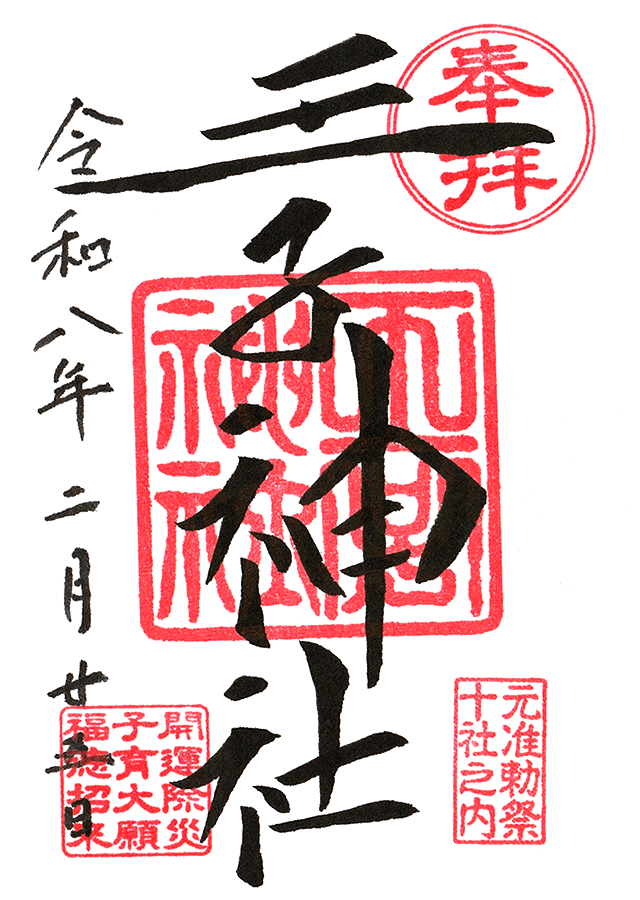 奉拝
王子神社
元准勅祭
十社之内
令和八年二月廿五日
開運除災
子育大願
福徳招来